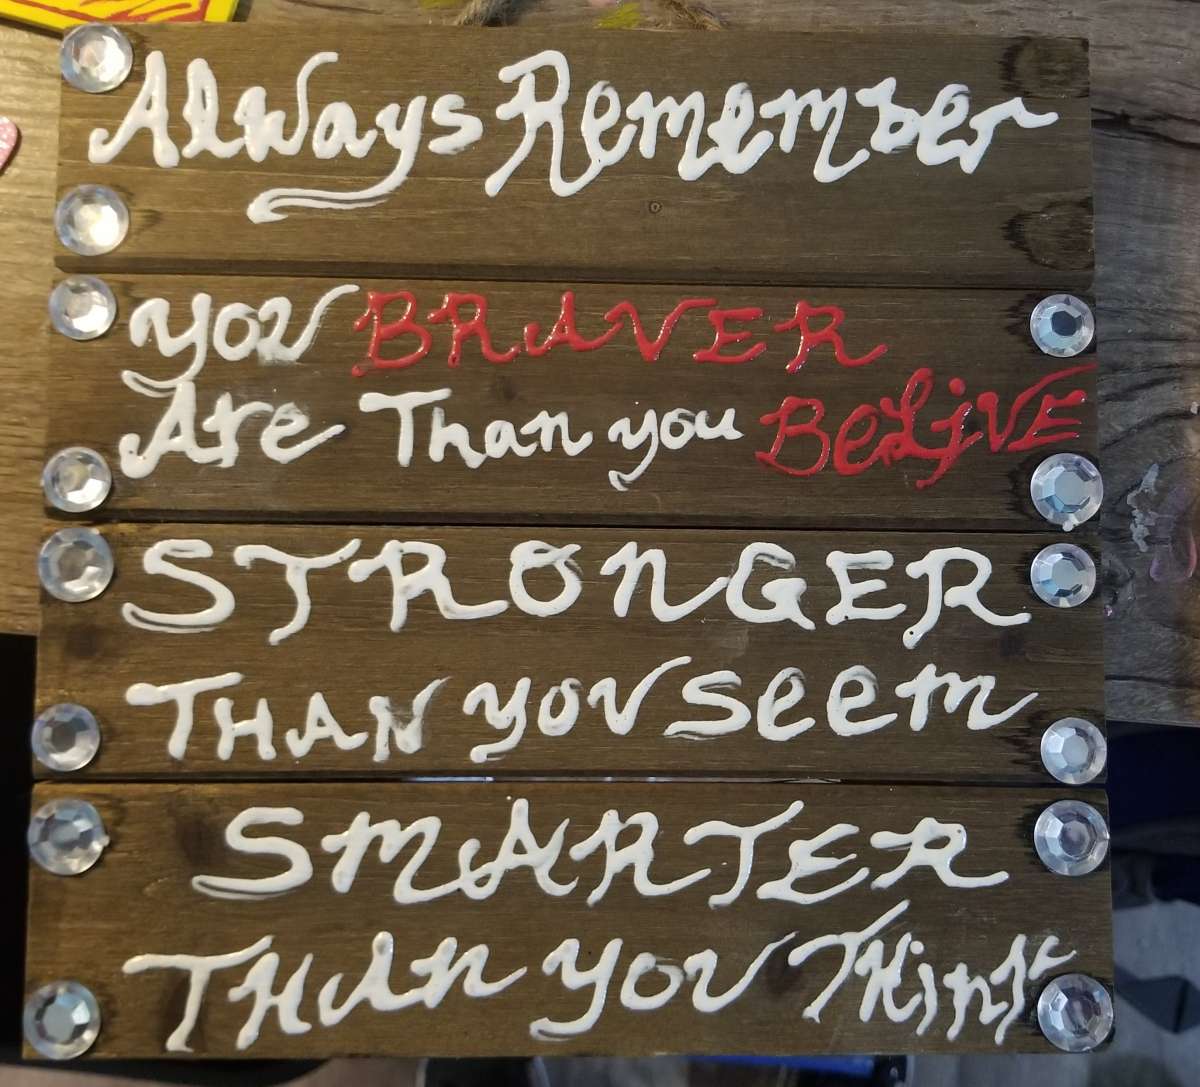 Always Remember
you BRAVER
Are Than you BeLiVE
STRONGER
THAN you seem
SMARTER
THAN you THink